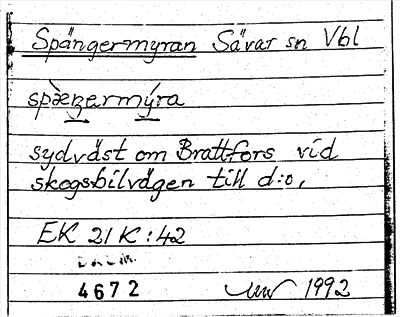 Spängermyran Sävar sn Vbl
spæ̀ŋermýra
sydväst om Brattfors vid
skogsbilvägen till d:o,
EK 21 K:42
DAUM
4672 1992